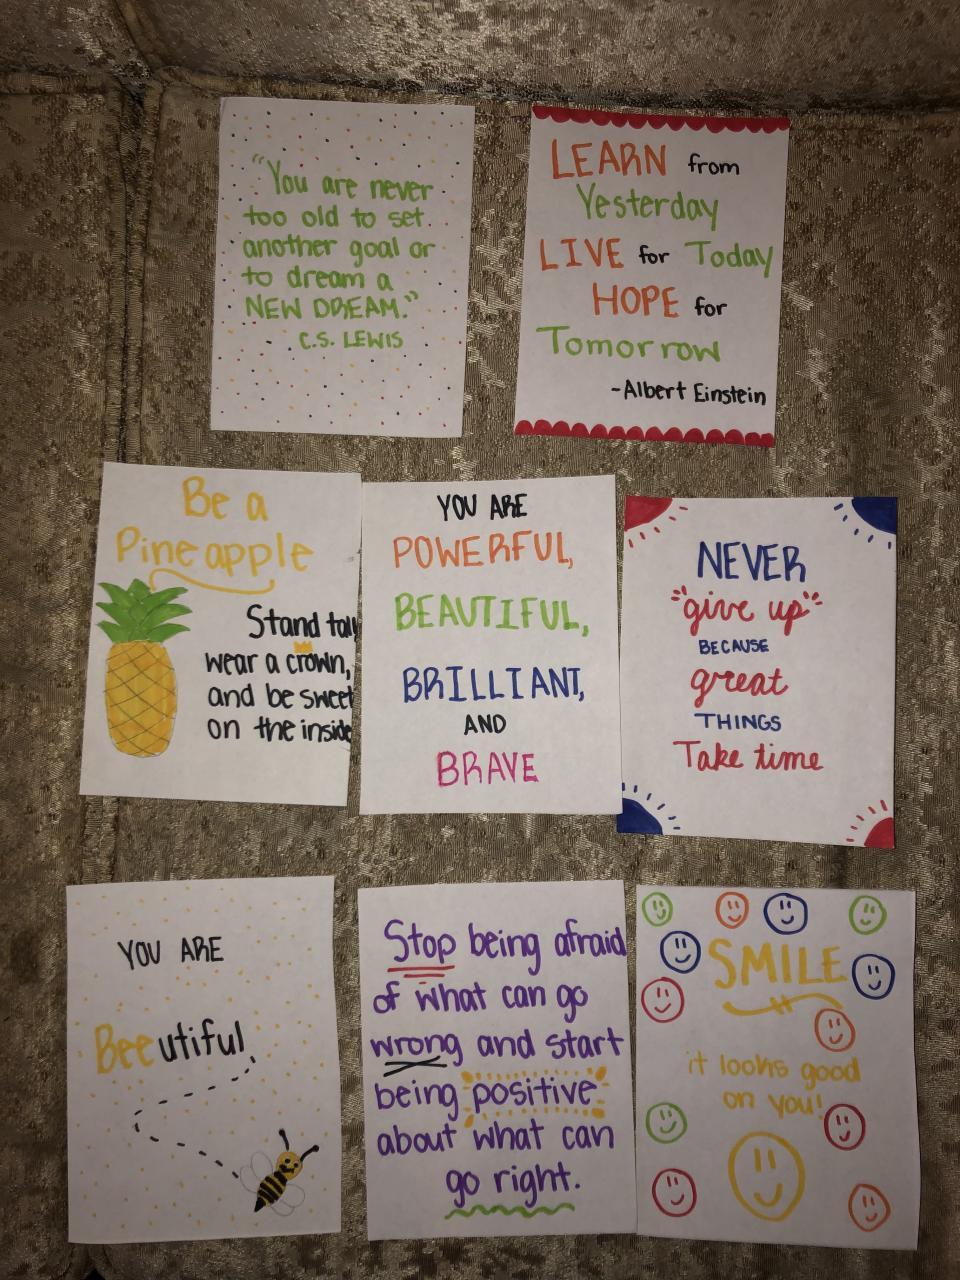 "You are never
too old to set
another goal or
to dream a
NEW DREAM."
C.S. LEWIS
LEARN from
Yesterday
LIVE for Today
HOPE for
Tomorrow
-Albert Einstein
Be a
Pineapple
Stand tall
wear a crown,
and be sweet
on the inside
YOU ARE
POWERFUL,
BEAUTIFUL,
BRILLIANT,
AND
BRAVE
NEVER
"give up"
BECAUSE
great
THINGS
Take time
YOU ARE
Beeutiful
Stop being afraid
of what can go
wrong and start
being positive
about what can
go right.
SMILE
it looks good
on you!